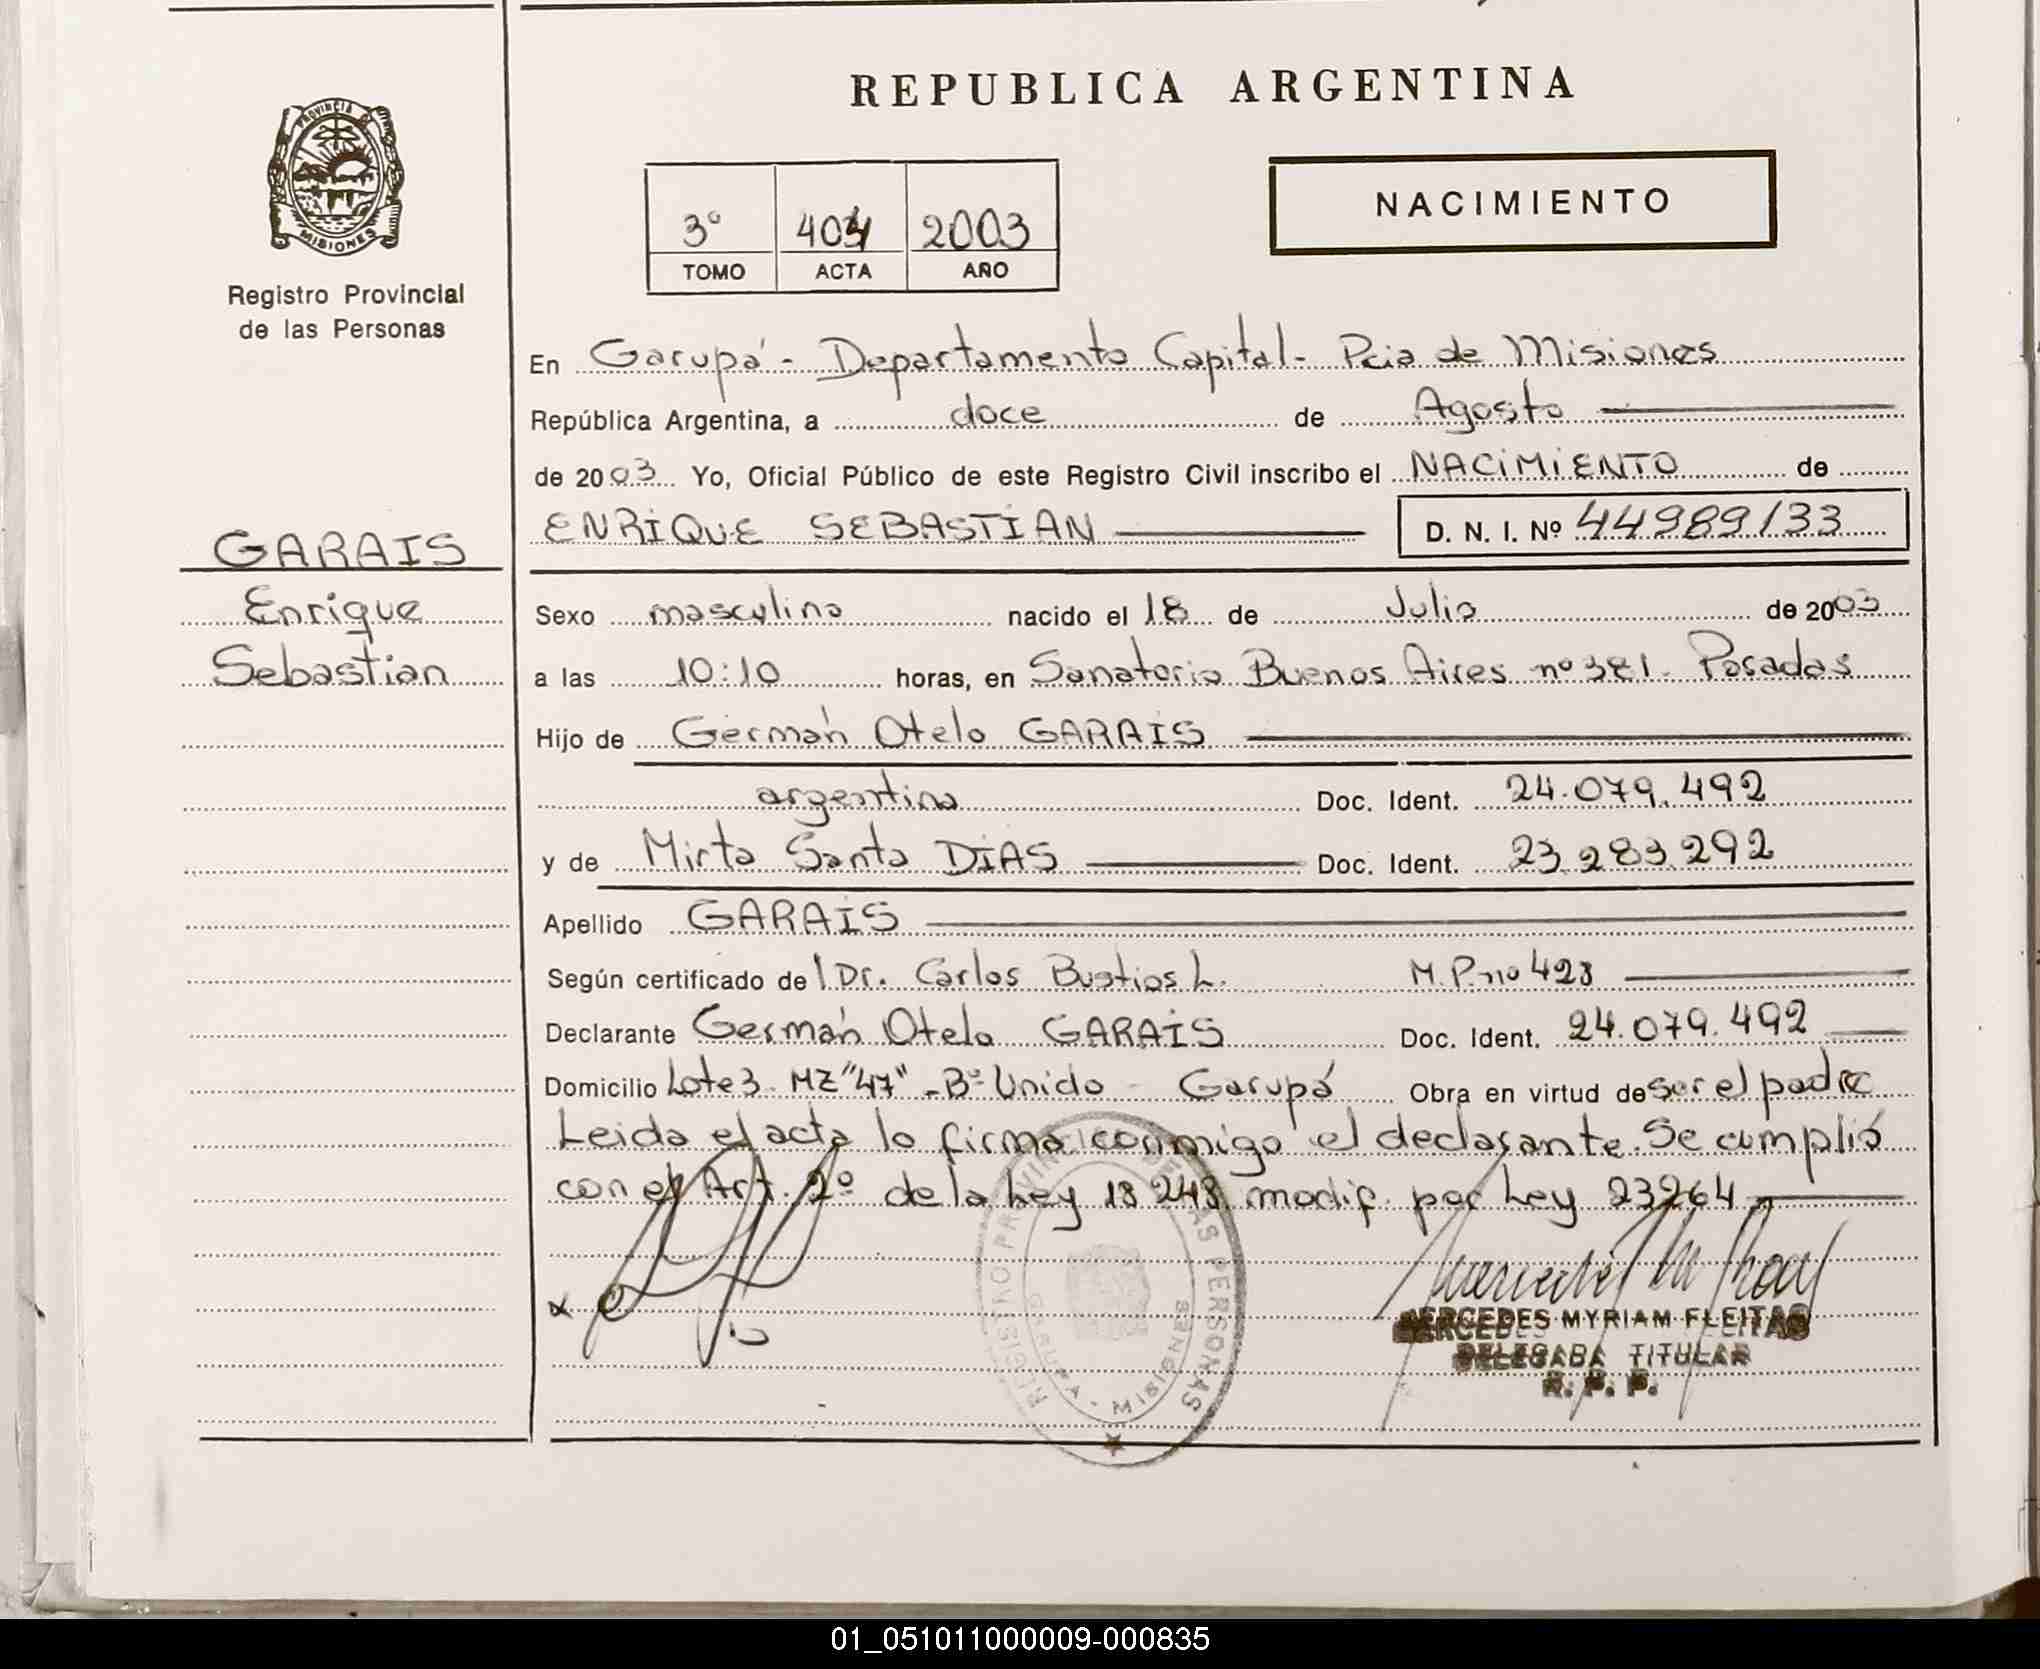 REPUBLICA ARGENTINA
PROVINCIA DE
MISIONES
Registro Provincial
de las Personas
3º 2003
TOMO ACTA AÑO
NACIMIENTO
En Garupá - Departamento Capital - Pcia de Misiones
República Argentina, a doce de Agosto
de 2003 Yo, Oficial Público de este Registro Civil inscribo el NACIMIENTO de
ENRIQUE SEBASTIAN D. N. I. Nº 44989133
GARAIS
Enrique
Sebastian
Sexo masculino nacido el 18 de Julio de 2003
a las 10:10 horas, en Sanatorio Buenos Aires nº 381. Posadas
Hijo de Germán Otelo GARAIS
argentino Doc. Ident. 24.079.492
y de Mirta Santa DIAS Doc. Ident. 23.283.292
Apellido GARAIS
Según certificado de l Dr. Carlos Bustios L. M.P. nº 423
Declarante Germán Otelo GARAIS Doc. Ident. 24.079.492
Domicilio Lote 3 MZ "47" - Bº Unido - Garupá Obra en virtud de ser el padre
Leida el acta lo firma conmigo el declarante. Se cumplió
con el Art. 2º de la Ley 18248 modif. por Ley 23264
REGISTRO PROVINCIAL DE LAS PERSONAS
GARUPA - MISIONES
MERCEDES MYRIAM FLEITAS
DELEGADA TITULAR
R. P. P.
01_051011000009-000835